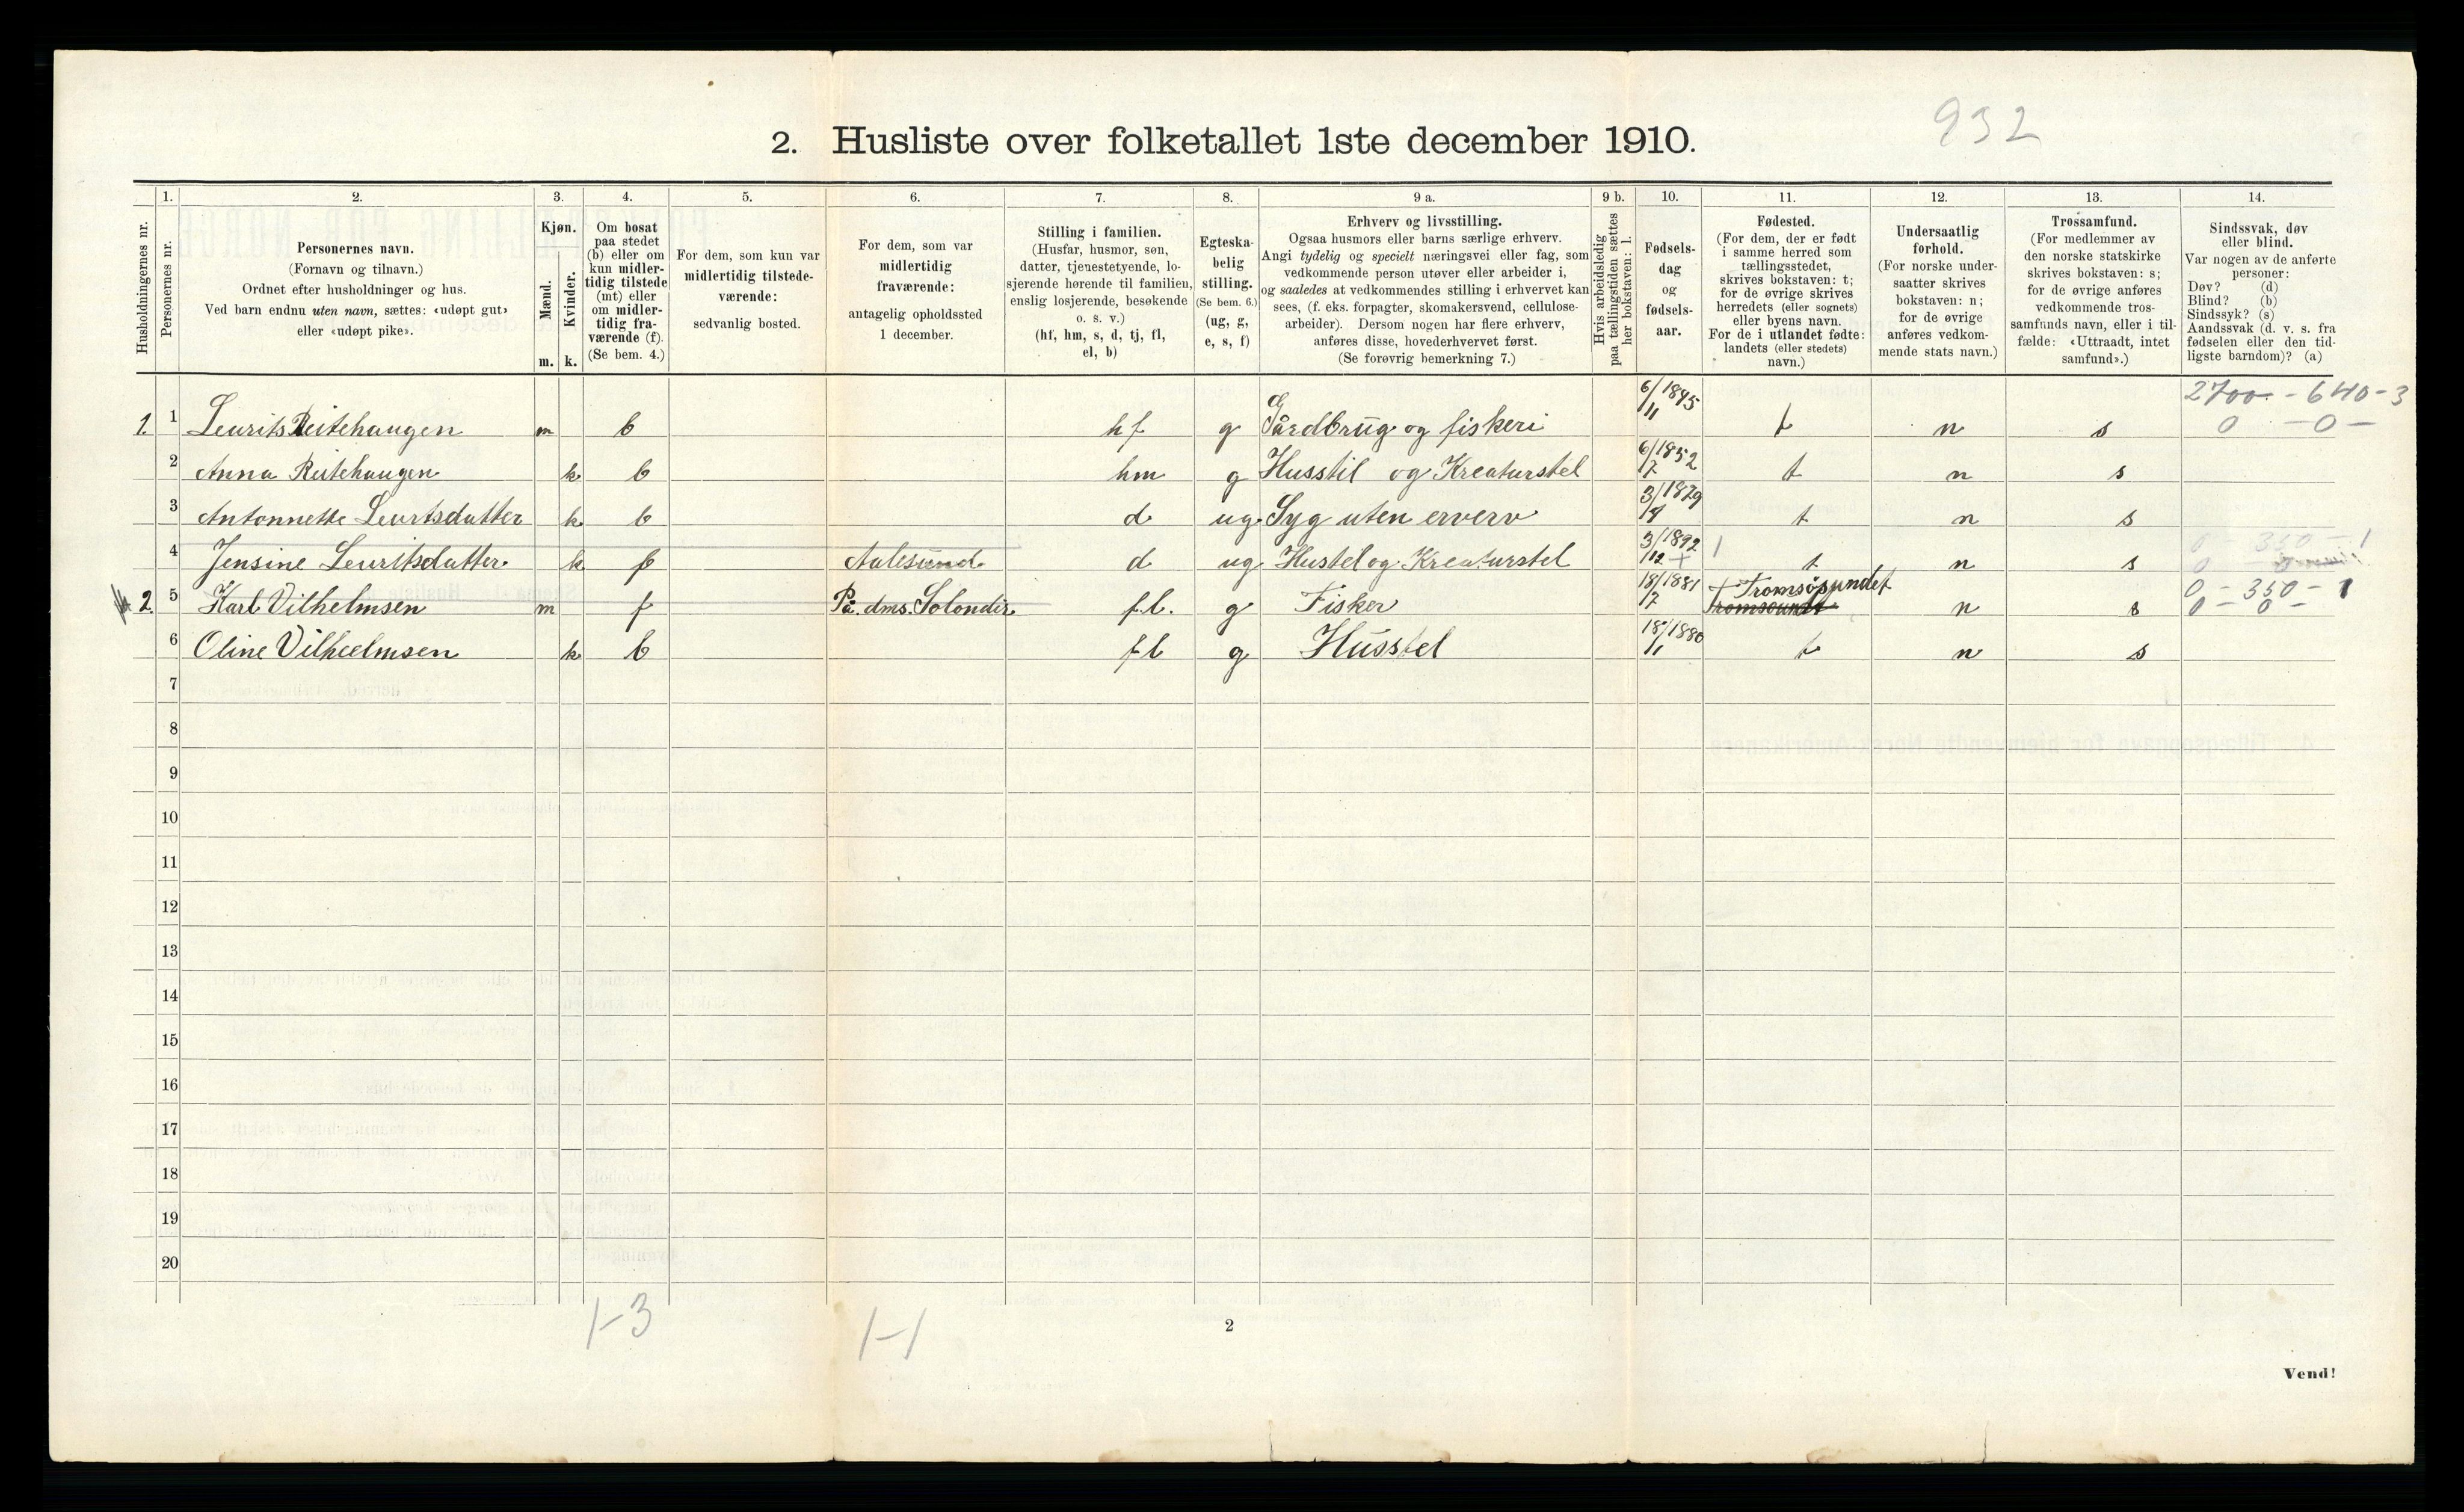 932
2. Husliste over folketallet 1ste december 1910.
Husholdningernes nr.
1.
Personernes nr.
2.
Personernes navn.
(Fornavn og tilnavn.)
Ordnet efter husholdninger og hus.
Ved barn endnu uten navn, sættes: «udøpt gut»
eller «udøpt pike».
3.
Kjøn.
Mænd.
Kvinder.
m. k.
4.
Om bosat
paa stedet
(b) eller om
kun midler-
tidig tilstede
(mt) eller
om midler-
tidig fra-
værende (f).
(Se bem. 4.)
5.
For dem, som kun var
midlertidig tilstede-
værende:
sedvanlig bosted.
6.
For dem, som var
midlertidig
fraværende:
antagelig opholdssted
1 december.
7.
Stilling i familien.
(Husfar, husmor, søn,
datter, tjenestetyende, lo-
sjerende hørende til familien,
enslig losjerende, besøkende
o. s. v.)
(hf, hm, s, d, tj, fl,
el, b)
8.
Egteska-
belig
stilling.
(Se bem. 6.)
(ug, g,
e, s, f)
9 a.
Erhverv og livsstilling.
Ogsaa husmors eller barns særlige erhverv.
Angi tydelig og specielt næringsvei eller fag, som
vedkommende person utøver eller arbeider i,
og saaledes at vedkommendes stilling i erhvervet kan
sees, (f. eks. forpagter, skomakersvend, cellulose-
arbeider). Dersom nogen har flere erhverv,
anføres disse, hovederhvervet først.
(Se forøvrig bemerkning 7.)
9 b.
Hvis arbeidsledig
paa tællingstiden sættes
her bokstaven: l.
10.
Fødsels-
dag
og
fødsels-
aar.
11.
Fødested.
(For dem, der er født
i samme herred som
tællingsstedet,
skrives bokstaven: t;
for de øvrige skrives
herredets (eller sognets)
eller byens navn.
For de i utlandet fødte:
landets (eller stedets)
navn.)
12.
Undersaatlig
forhold.
(For norske under-
saatter skrives
bokstaven: n;
for de øvrige
anføres vedkom-
mende stats navn.)
13.
Trossamfund.
(For medlemmer av
den norske statskirke
skrives bokstaven: s;
for de øvrige anføres
vedkommende tros-
samfunds navn, eller i til-
fælde: «Uttraadt, intet
samfund».)
14.
Sindssvak, døv
eller blind.
Var nogen av de anførte
personer:
Døv? (d)
Blind? (b)
Sindssyk? (s)
Aandssvak (d. v. s. fra
fødselen eller den tid-
ligste barndom)? (a)
2700 - 640 - 3
1. 1 Leurits Reitehaugen m b hf g Gårdbrug og fiskeri 6/11 1845 t n s 0 - 0 -
2 Anna Reitehaugen k b hm g Husstil og Kreaturstel 6/7 1852 t n s
3 Antonnette Leuritsdatter k b d ug Syg uten erverv 3/8 1879 t n s
4 Jensine Leuritsdatter. k f Aalesund. d ug Hustel og Kreaturstel 3/12 1892 t n s 0 - 350 - 1
2. 5 Karl Vilhelmsen m f På dms. Solondir fl. g Fisker 18/7 1881 + Tromsøsundet Tromsoundt n s 0 - 350 - 1
0 - 0 -
6 Oline Vilheelmsen k b fl g Husstel 18/1 1880 t n s
7
8
9
10
11
12
13
14
15
16
17
18
19
20
1-3
1-1
2
Vend!